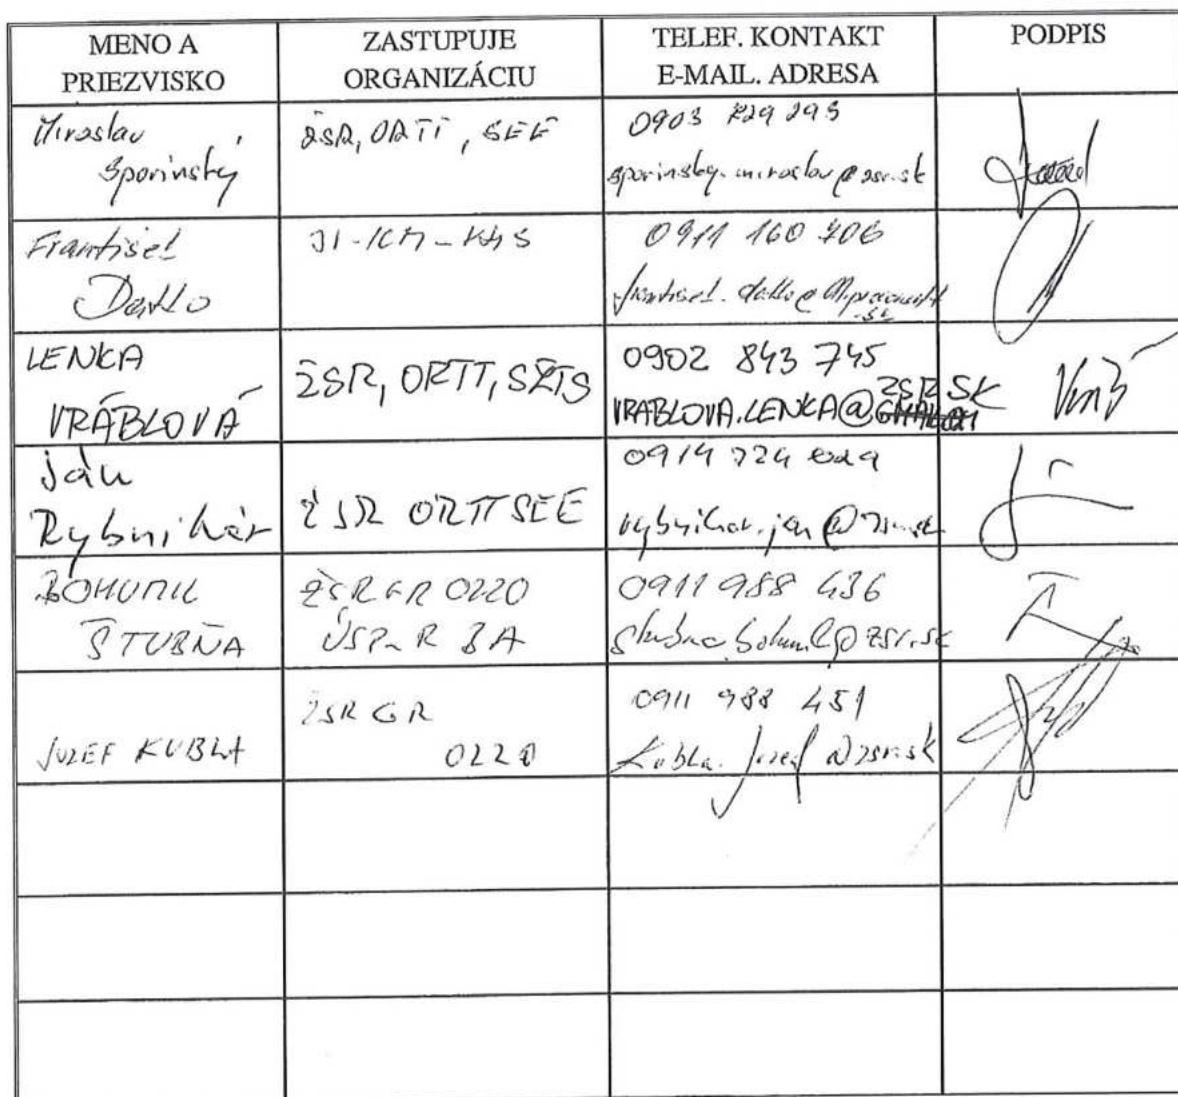 MENO A
PRIEZVISKO
ZASTUPUJE
ORGANIZÁCIU
TELEF. KONTAKT
E-MAIL. ADRESA
PODPIS
Miroslav
Sporinský
ŽSR, ORTT, SEE
0903
sporinsky.miroslav@zsr.sk
František
0911 160 706
LENKA
VRÁBLOVÁ
ŽSR, ORTT, SŽTS
0902 843 745
VRABLOVA.LENKA@ZSR.SK
Ján
Rybnikár
ŽSR ORTT SEE
0914 724 029
rybnikar.jan@zsr.sk
BOHUMIL
ŠTUBŇA
ŽSR GR O220
BA
0911 988 436
stubna.bohumil@zsr.sk
JOZEF KUBLA
ŽSR GR
O220
0911 988 451
Kubla.Jozef@zsr.sk